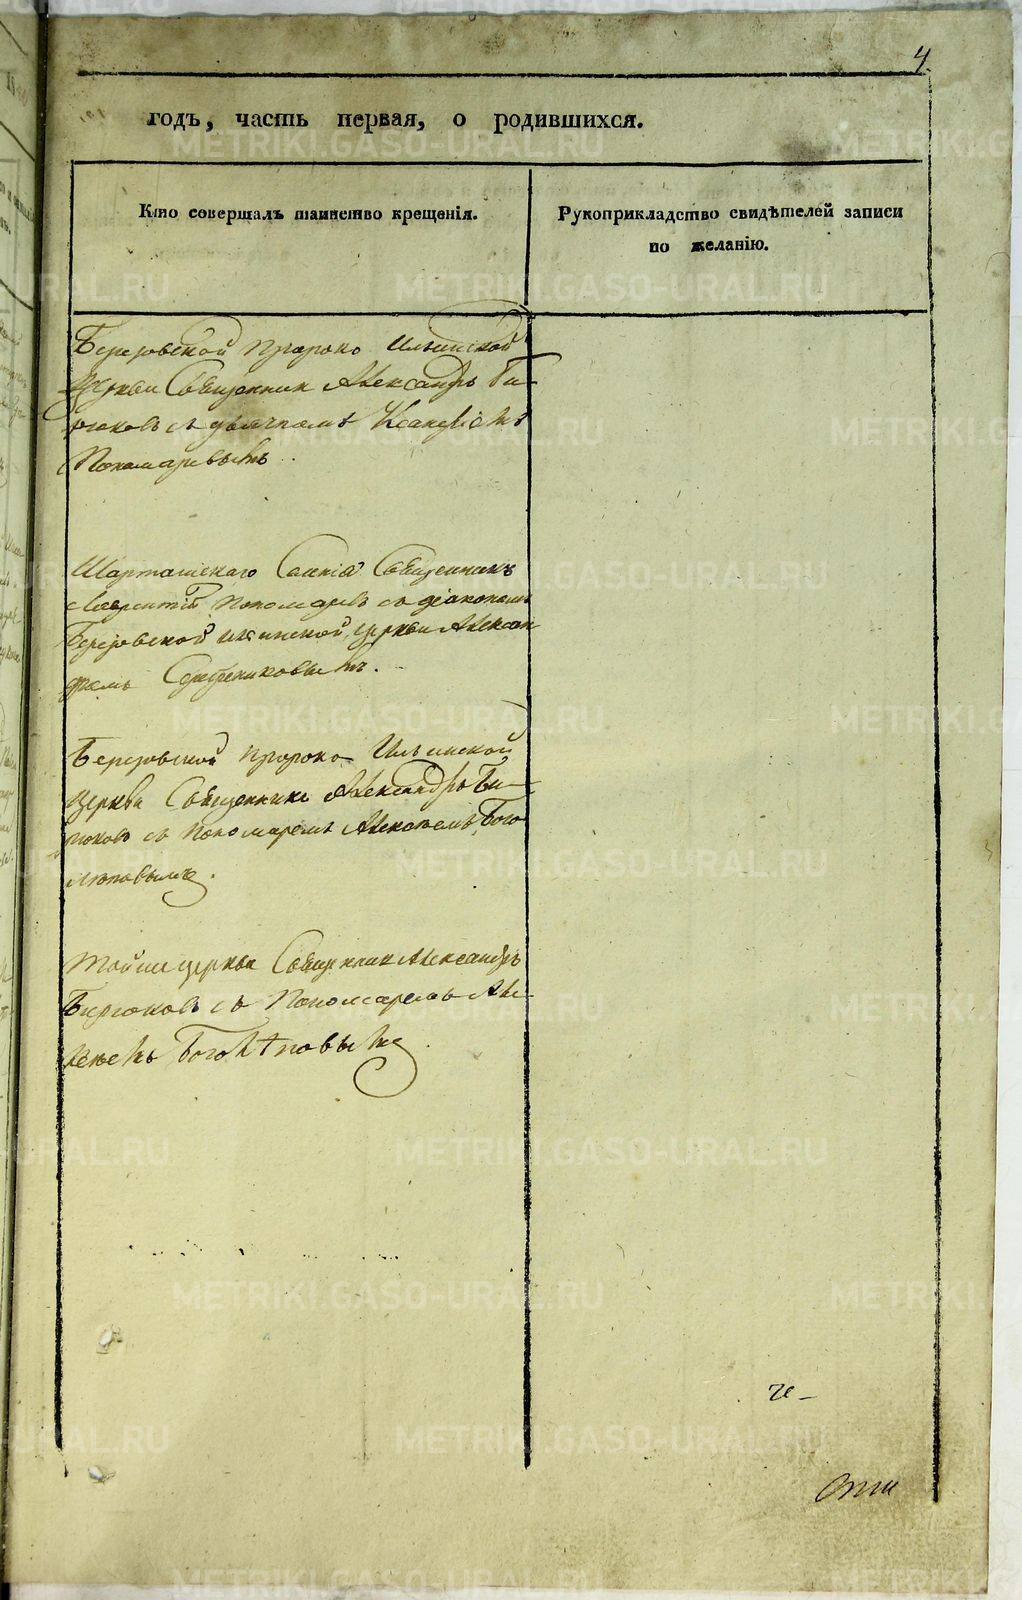 4
годъ, часть первая, о родившихся.
Кто совершалъ таинство крещенія.
Рукоприкладство свидѣтелей записи
по желанію.
Березовской Пророко Ильинской
Церкви Священник Александръ Би-
рюковъ съ дьячкомъ
Пономаревымъ
Шарташскаго Селенія Священникъ
Лаврентій Пономаревъ съ діакономъ
Березовской Ильинской церкви Алексан
дромъ Серебениковымъ.
Березовской Пророко Ильинской
Церкви Священникъ Александръ Би-
рюковъ съ Пономаремъ Алексѣемъ Бого
лѣповымъ.
Той же церкви Священник Александръ
Бирюковъ съ Пономаремъ Але-
ксѣемъ Боголѣповымъ
че-
METRIKI.GASO-URAL.RU